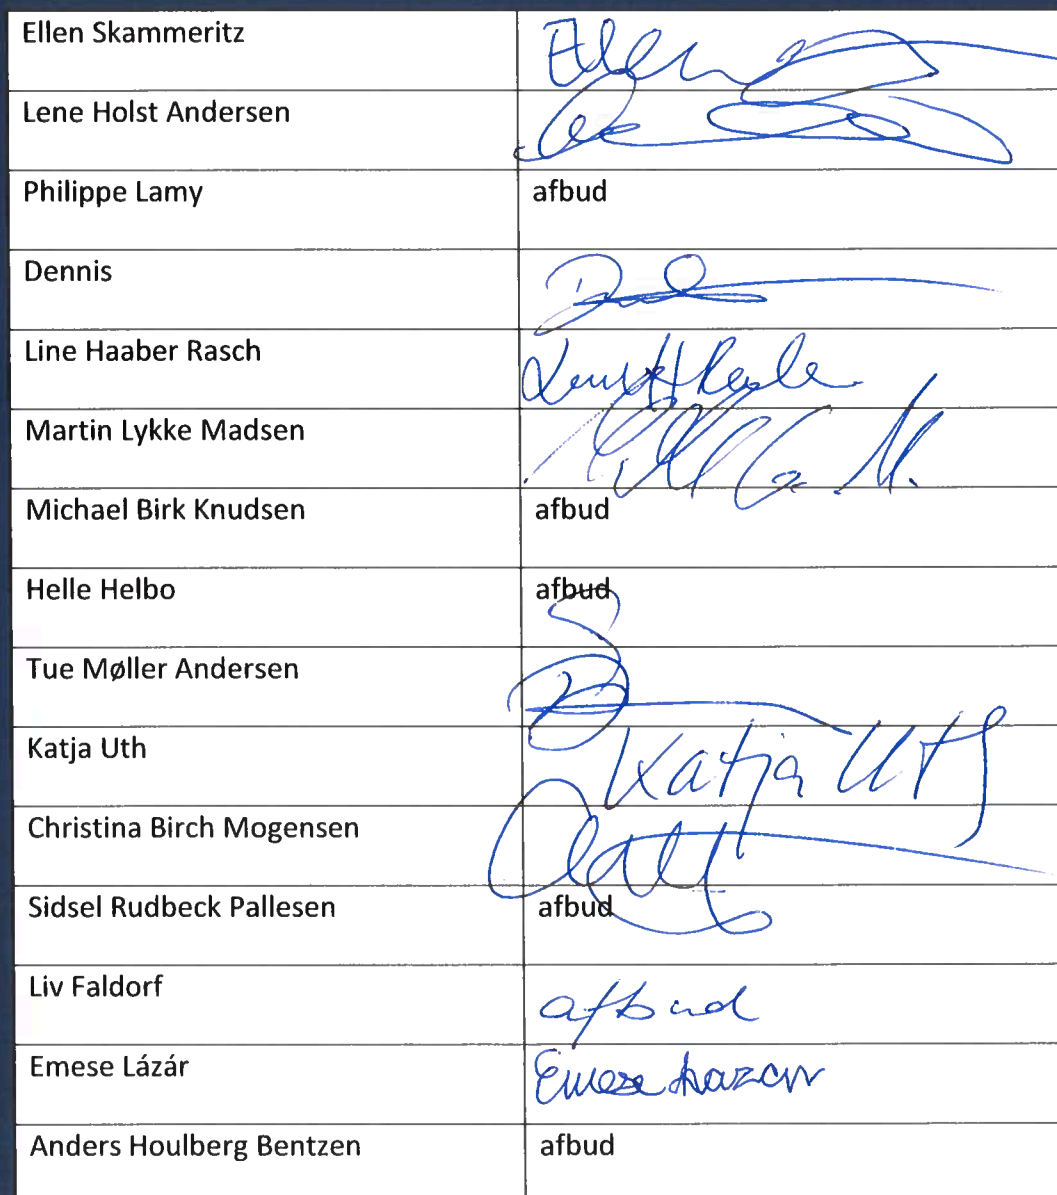 Ellen Skammeritz Ellen
Lene Holst Andersen
Philippe Lamy afbud
Dennis
Line Haaber Rasch
Martin Lykke Madsen
Michael Birk Knudsen afbud
Helle Helbo afbud
Tue Møller Andersen
Katja Uth Katja Uth
Christina Birch Mogensen
Sidsel Rudbeck Pallesen afbud
Liv Faldorf afbud
Emese Lázár Emese Lazar
Anders Houlberg Bentzen afbud